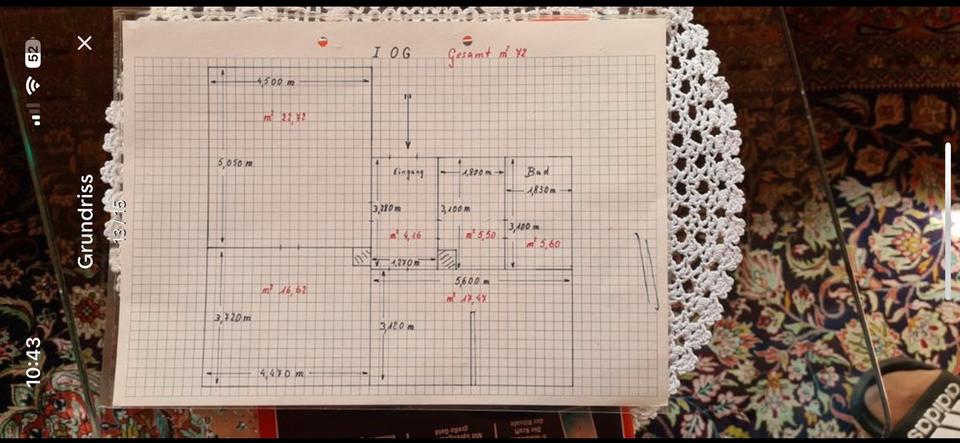 10:43
52
Grundriss
13/15
I OG
Gesamt m² 72
4,500 m
m² 22,72
5,050 m
Eingang
1,800 m
Bad
1,830 m
3,280 m
3,100 m
3,100 m
m² 4,16
m² 5,50
m² 5,60
1,270 m
5,600 m
m² 16,62
m² 17,47
3,720 m
3,120 m
4,470 m
adidas
Die Kraft
der Rituale
große Geld